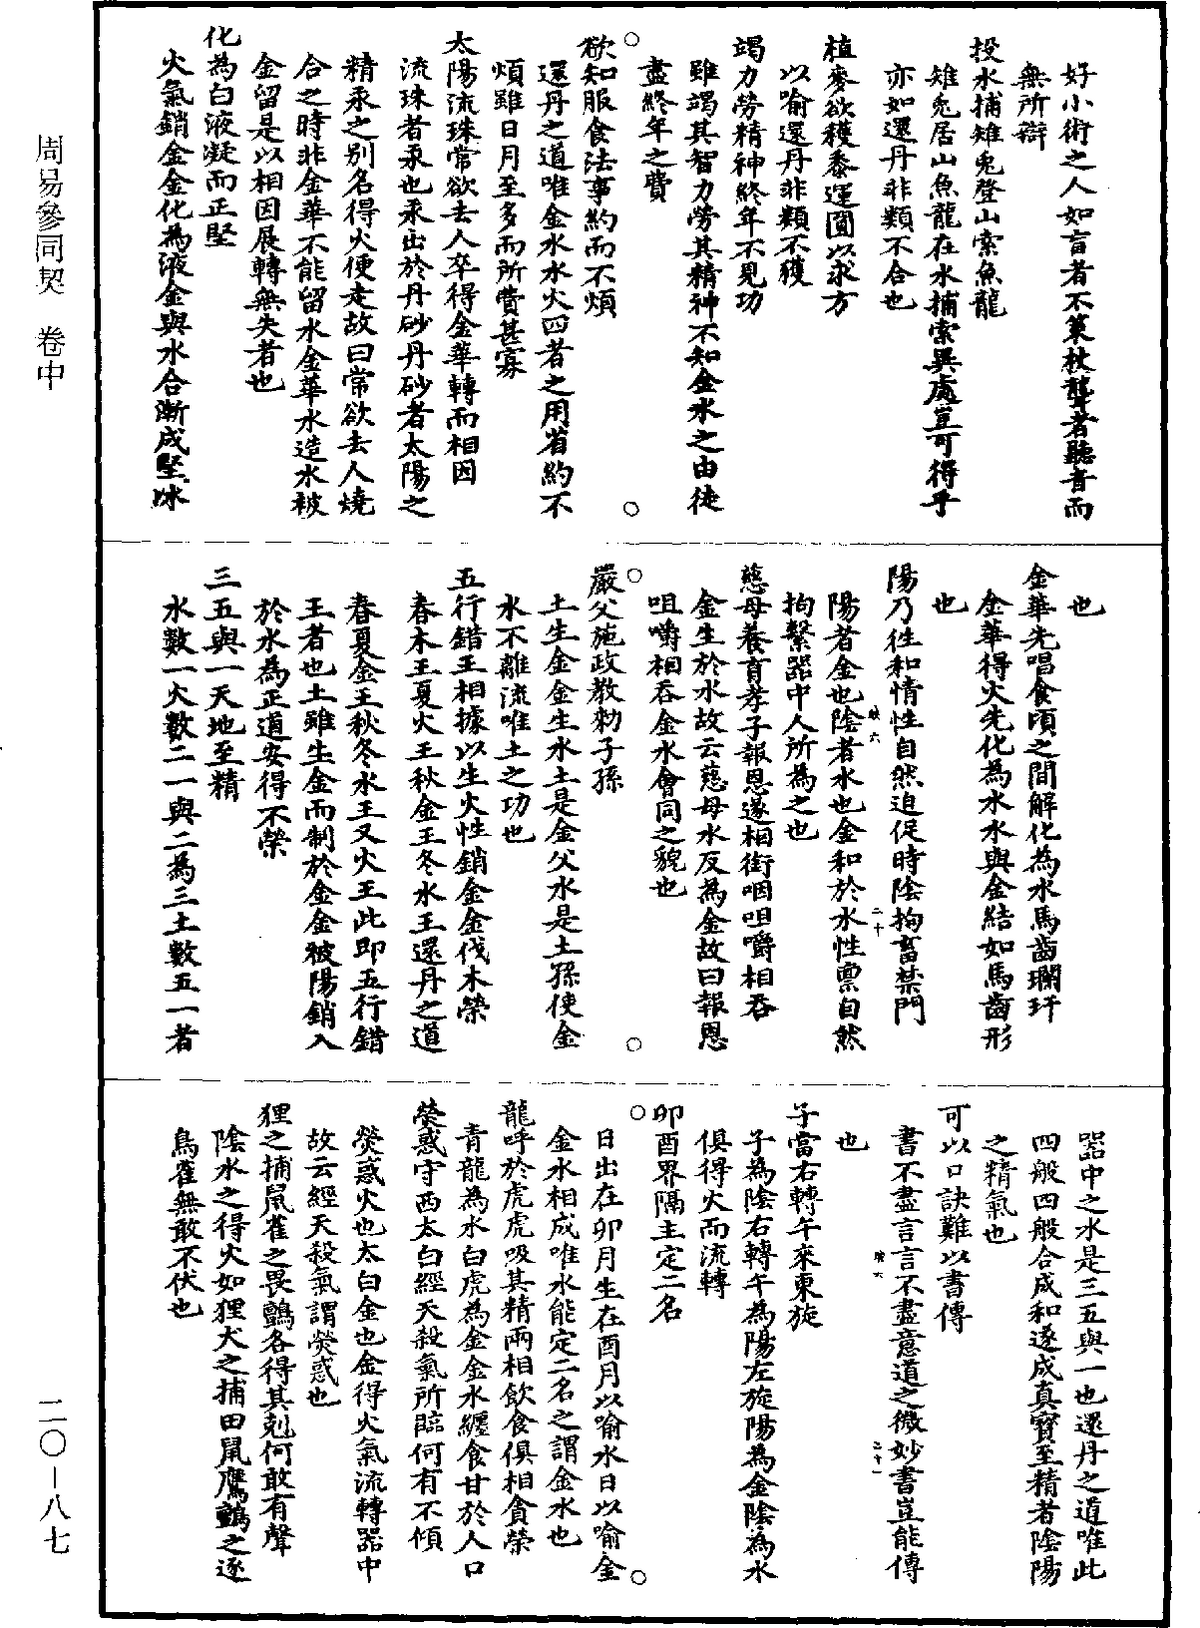 好小術之人如盲者不策杖聾者聽音而
無所辯
投水捕雉兎登山索魚龍
雉兎居山魚龍在水捕索異處豈可得乎
亦如還丹非類不合也
植麥欲穫黍運圓以求方
以喻還丹非類不穫
竭力勞精神終年不見功
雖竭其智力勞其精神不知金水之由徒
盡終年之費
欲知服食法事約而不煩
還丹之道唯金水水火四者之用省約不
煩雖日月至多而所費甚寡
太陽流珠常欲去人卒得金華轉而相因
流珠者汞也汞出於丹砂丹砂者太陽之
精汞之別名得火便走故曰常欲去人燒
合之時非金華不能留水金華水造水被
金留是以相因展轉無失者也
化為白液凝而正堅
火氣銷金金化為液金與水合漸成堅冰
也
金華先唱食頃之間解化為水馬齒瓓玕
金華得火先化為水水與金結如馬齒形
也
陽乃往和情性自然迫促時陰拘畜禁門
陽者金也陰者水也金和於水性禀自然
拘繫器中人所為之也
慈母養育孝子報恩遂相銜咽咀嚼相吞
金生於水故云慈母水反為金故曰報恩
咀嚼相吞金水會同之貌也
嚴父施政教勑子孫
土生金金生水土是金父水是土孫使金
水不離流唯土之功也
五行錯王相據以生火性銷金金伐木榮
春木王夏火王秋金王冬水王還丹之道
春夏金王秋冬水王又火王此即五行錯
王者也土雖生金而制於金金被陽銷入
於水為正道安得不榮
三五與一天地至精
水數一火數二一與二為三土數五一者
器中之水是三五與一也還丹之道唯此
四般四般合成和遂成真寶至精者陰陽
之精氣也
可以口訣難以書傳
書不盡言言不盡意道之微妙書豈能傳
也
子當右轉午來東旋
子為陰右轉午為陽左旋陽為金陰為水
俱得火而流轉
卯酉界隔主定二名
日出在卯月生在酉月以喻水日以喻金
金水相成唯水能定二名之謂金水也
龍呼於虎虎吸其精兩相飲食俱相貪榮
青龍為水白虎為金金水纏食甘於人口
熒惑守西太白經天殺氣所臨何有不傾
熒惑火也太白金也金得火氣流轉器中
故云經天殺氣謂熒惑也
狸之捕鼠雀之畏鸇各得其剋何敢有聲
陰水之得火如狸犬之捕田鼠鷹鸇之逐
鳥雀無敢不伏也
周易參同契　卷中
二〇—八七